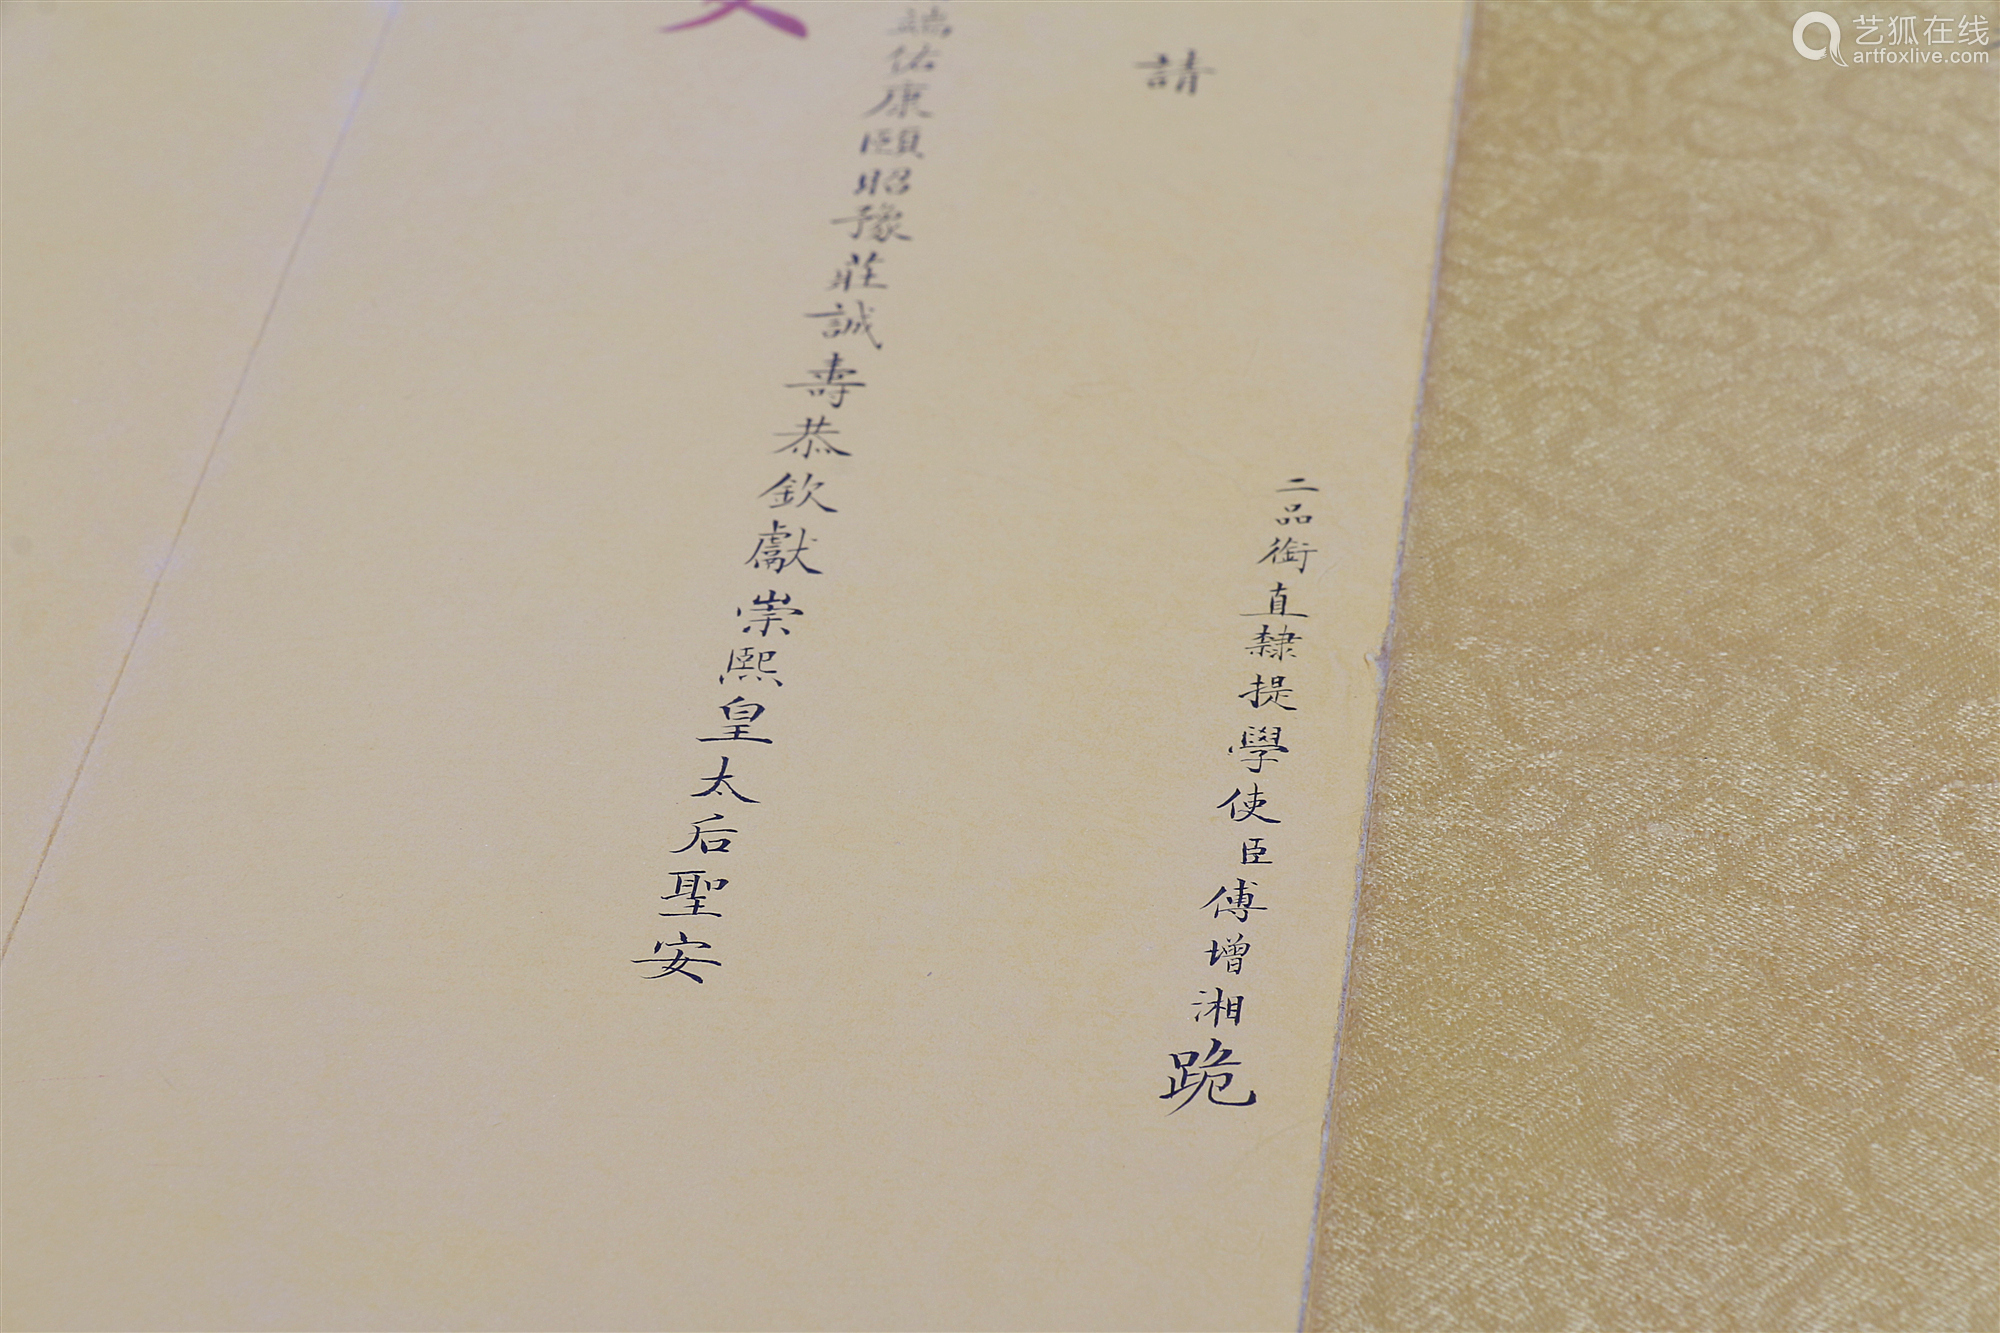 二品銜直隸提學使臣傅增湘跪
請
端佑康頤昭豫莊誠壽恭欽獻崇熙皇太后聖安
艺狐在线
artfoxlive.com